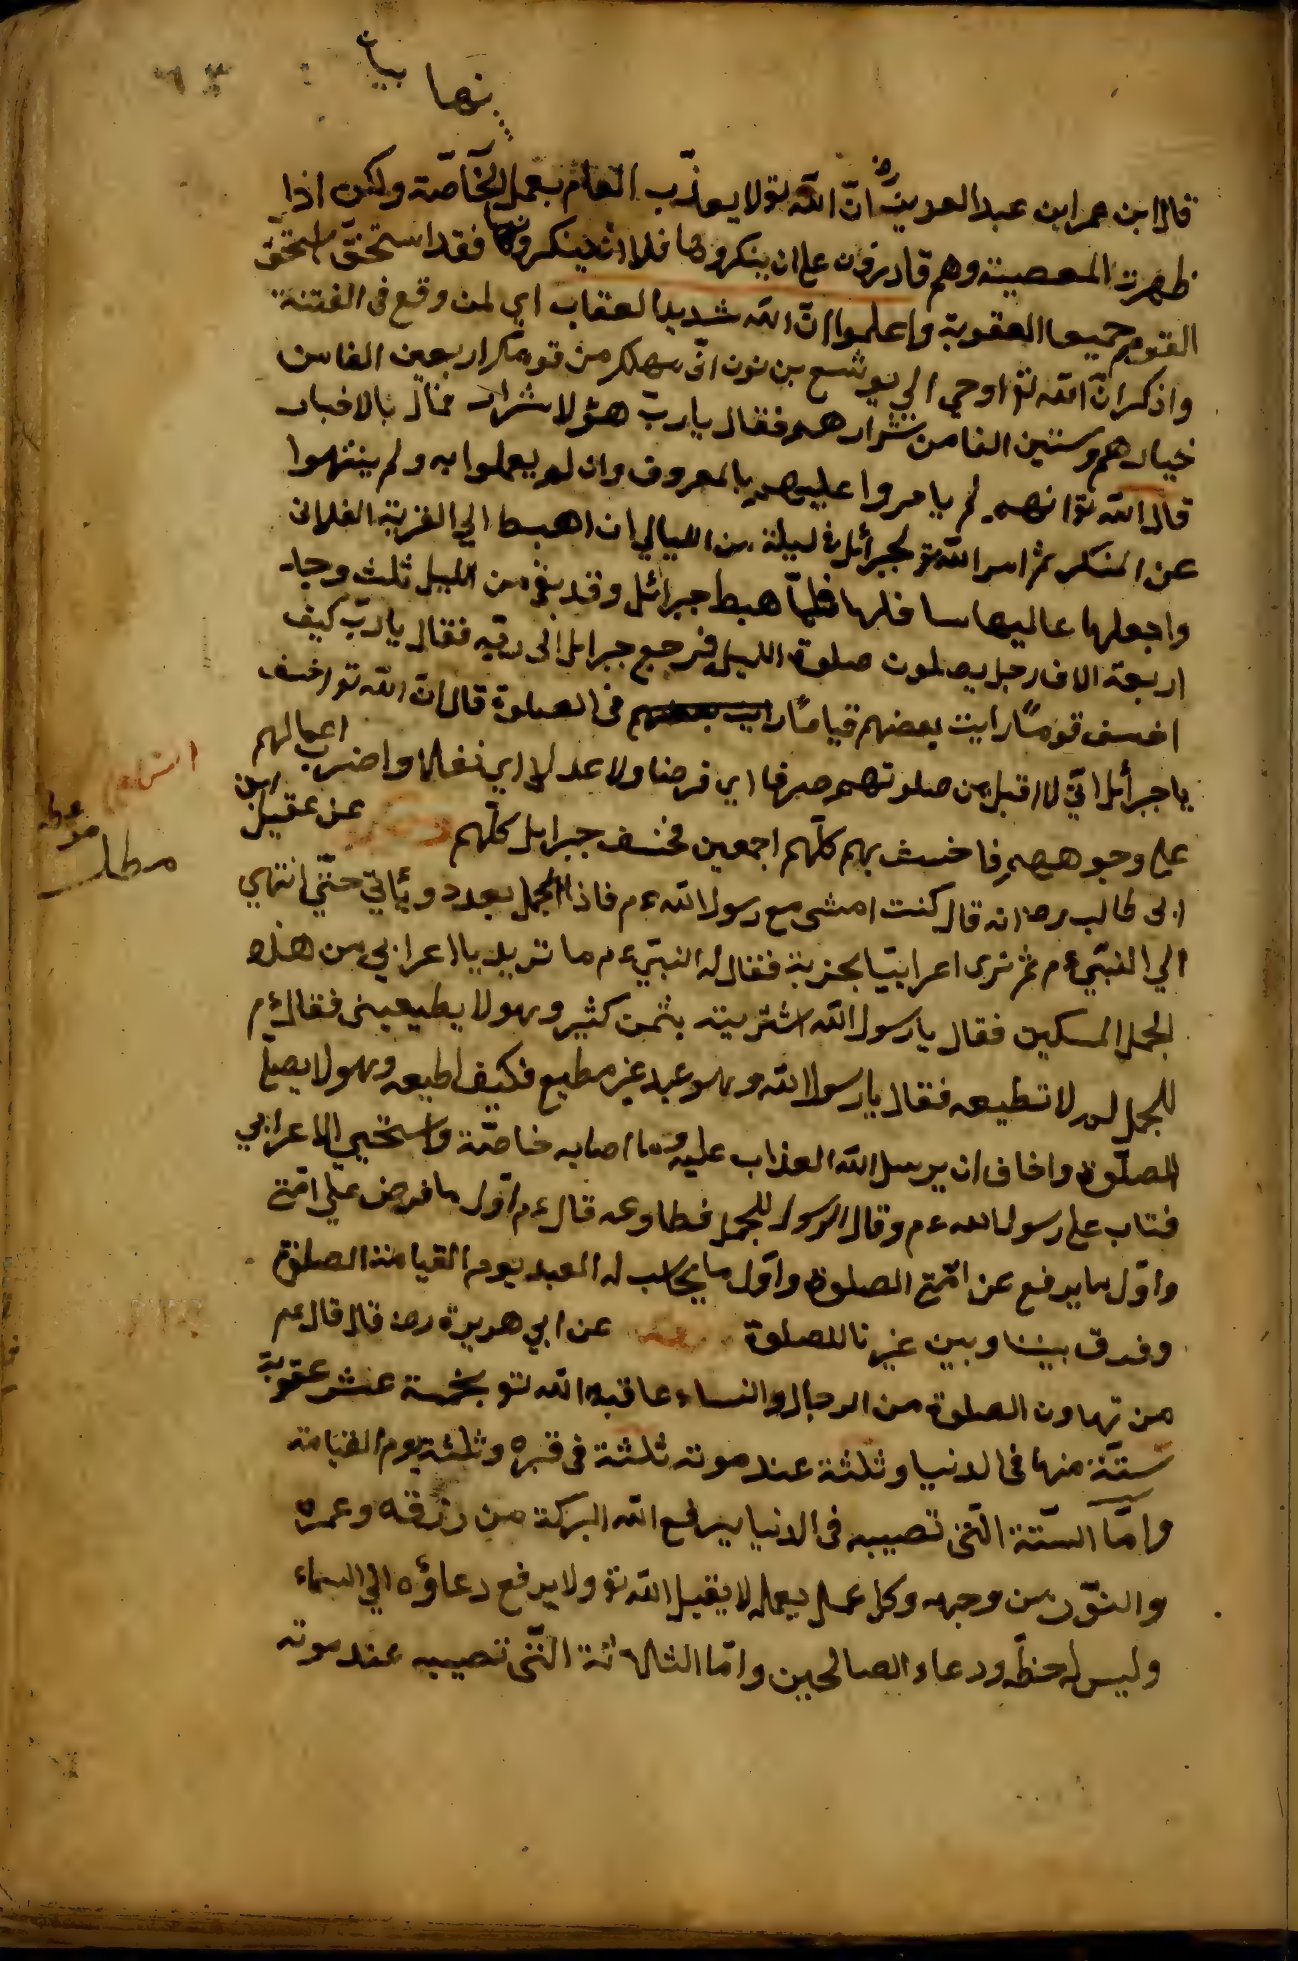 نها بيان
قال ابن عمر ابن عبد العزيز رض ان الله تو لا يعذّب العام بعمل الخآصّة ولكن اذا
ظهرت المعصية وهم قادرون على ان ينكروها فلا ان ينكروها فقد استحقّ استحقّ
القوم جميعا العقوبة واعلموا انّ الله شديد العقاب اي لمن وقع فى الفتنة
واذكر انّ الله تو اوحى الي يوشع بن نون انّى مهلك من قومك اربعين الفا من
خيارهم وستين الفا من شرارهم فقال يا ربّ هؤلا شرار فما ل بالاخيار
قال الله تو انهم لم يامروا عليهم بالمعروف وان لم يعملوا به ولم ينتهوا
عن المنكر ثم امر الله تو لجبرائل فى ليلة من الليالي ان اهبط الي القرية الفلانى
واجعلها عاليها سافلها فلمّا هبط جبرائل وقد بقي من الليل ثلث وجد
اربعة الاف رجل يصلون صلوة الليل فرجع جبرايل الى ربّه فقال يا ربّ كيف
اخسف قومًا رايت بعضهم قيامًا رايت بعضهم فى الصلوة قال انّ الله تو اخسف
يا جبرائل انّي لا اقبل من صلوتهم صرفا اي فرضا ولا عدلا اي نفلا واضرب اعمالهم
على وجوههم فاخسف بهم كلّهم اجمعين فخسف جبرايل كلّهم عن عقيل ابن
ابى طالب رض انه قال كنت امشى مع رسول الله ءم فاذا الجمل يعدد ويأتي حتّى انتهي
الي النبّي ءم ثم نرى اعرابيّا بحربة فقال له النبّي ءم ما تريد يا اعرابي من هذه
الجمل المسكين فقال يا رسول الله اشتريته بثمن كثير وهو لا يطيعينى فقال ءم
للجمل لم لا تطيعه فقال يا رسول الله وهو عبد غير مطيع فكيف اطيعه وهو لا يصلّ
الصلوة واخاف ان يرسل الله العذاب عليه وما اصابه خاصّة واستحيي الاعرابي
فتاب على رسول الله ءم وقال الرسول للجمل فطاوعه قال ءم اوّل ما فرض على امّتى
واوّل ما يرفع عن امّتى الصلوة واوّل ما يحاسب له العبد يوم القيامة الصلوة
وفرق بيننا وبين غيرنا الصلوة عن ابي هريرة رض قال قال ءم
من تهاون الصلوة من الرجال والنساء عاقبه الله تو بخمسة عشر عقوبة
ستّة منها فى الدنيا وثلثة عند موته ثلثة فى قبره وثلثة يوم القيامة
وامّا الستّة الّتى تصيبه فى الدنيا يرفع الله البركة من رزقه وعمره
والنوّر من وجهه وكل عمل يعمله لا يقبل الله تو ولا يرفع دعاؤه الي السماء
وليس له حظّ ودعاء الصالحين وامّا الثلاثة الّتى تصيبه عند موته
مطلب